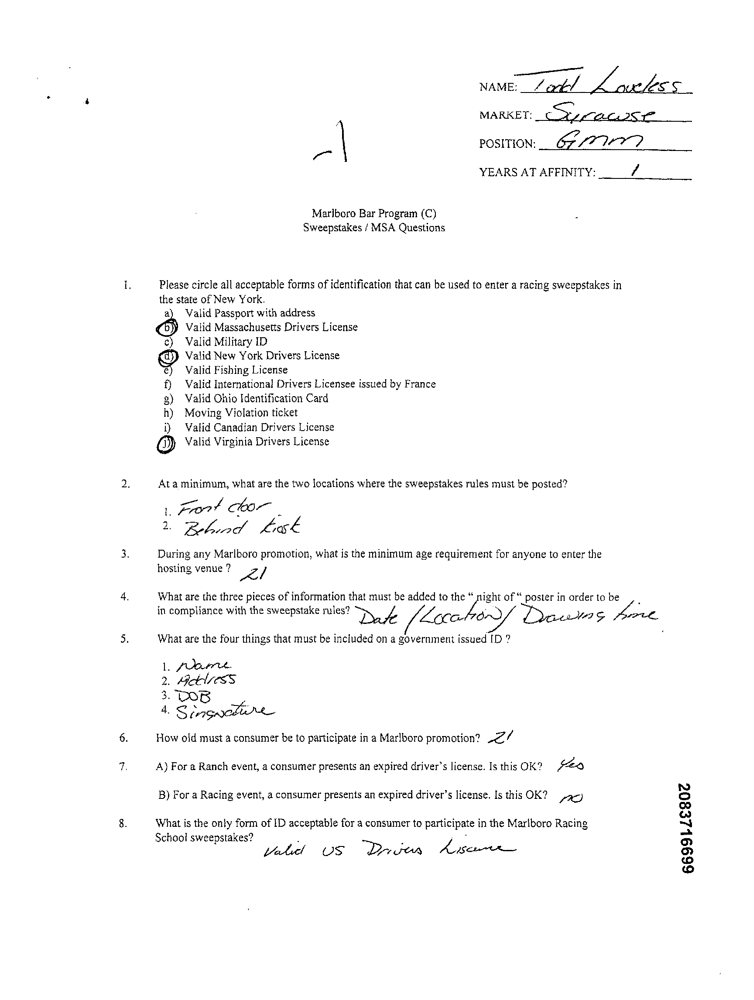 NAME: Todd Loveless
MARKET: Syracuse
POSITION: GMM
YEARS AT AFFINITY: 1
-1
Marlboro Bar Program (C)
Sweepstakes / MSA Questions
1. Please circle all acceptable forms of identification that can be used to enter a racing sweepstakes in
the state of New York.
a) Valid Passport with address
b) Valid Massachusetts Drivers License
c) Valid Military ID
d) Valid New York Drivers License
e) Valid Fishing License
f) Valid International Drivers Licensee issued by France
g) Valid Ohio Identification Card
h) Moving Violation ticket
i) Valid Canadian Drivers License
j) Valid Virginia Drivers License
2. At a minimum, what are the two locations where the sweepstakes rules must be posted?
1. Front door
2. Behind kiosk
3. During any Marlboro promotion, what is the minimum age requirement for anyone to enter the
hosting venue ? 21
4. What are the three pieces of information that must be added to the " night of " poster in order to be
in compliance with the sweepstake rules? Date / Location / Drawing time
5. What are the four things that must be included on a government issued ID ?
1. Name
2. Address
3. DOB
4. Singnature
6. How old must a consumer be to participate in a Marlboro promotion? 21
7. A) For a Ranch event, a consumer presents an expired driver's license. Is this OK? Yes
B) For a Racing event, a consumer presents an expired driver's license. Is this OK? no
8. What is the only form of ID acceptable for a consumer to participate in the Marlboro Racing
School sweepstakes? Valid US Drivers
2083716699